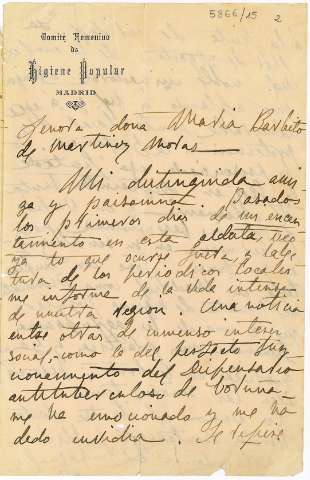 5866/15 2
Comité Femenino
de
Higiene Popular
MADRID
Señora doña Maria Barbeito
de Martinez Moras
Mi distinguida ami
ga y paisanina. Pasados
los primeros dias de mi encan
tamiento en esta aldata,
lo que ocurre fuera y la lec
tura de los periodicos locales
me informa de la vida intensa
de nuestra region. Una noticia
entre otras de inmenso interes
social, como la del perfecto fun
cionamiento del Dispensario
antituberculoso de Coruña
me ha emocionado y me ha
dado envidia. Se refiere